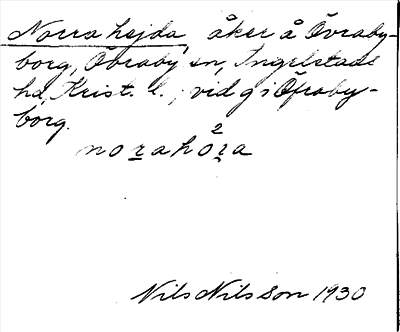 Norra hejda, åker å Övraby-
borg, Övraby sn, Ingelstads
hd, Krist. l.; vid g i Öfraby-
borg.
2
norahöra
Nils Nilsson 1930